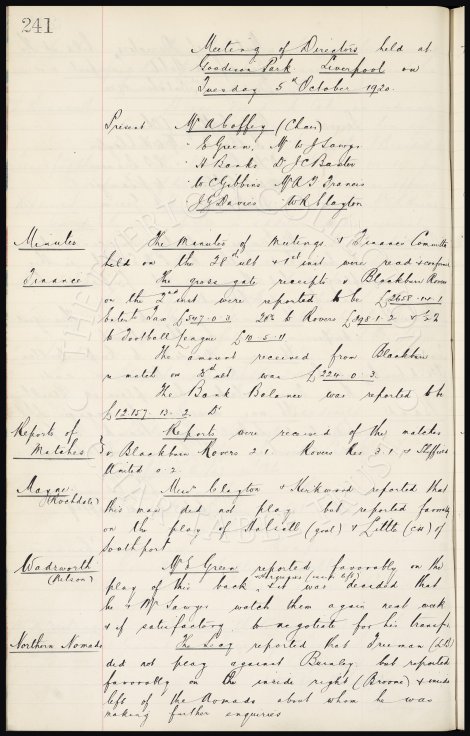 241
Meeting of Directors held at
Goodison Park Liverpool on
Tuesday 5th October 1920.
Present Mr A Coffey (Chair)
E Green, Mr W J Sawyer
H Banks Dr J C Baxter
W C Gibbins Mr A T Francis
J G Davies W R Clayton
Minutes The Minutes of Meetings & Finance Committee
held on the 28th ult & 1st inst were read & confirmed
Finance The gross gate receipts v Blackburn Rovers
on the 2nd inst were reported to be £2658.14.1
Entertt Tax £547.0.3 20% to Rovers £398.1.2 &
to Football League £10.5.11
The amount received from Blackburn
match on inst was £224.0.3.
The Bank Balance was reported to be
£12157.13.2. Dr
Reports of Matches } Reports were received of the matches
v Blackburn Rovers 2.1. Rovers Res 3.1 & Sheffield
United 0.2.
Mayne (Rochdale) Messrs Clayton & Kirkwood reported that
this man did not play but reported favorably
on the play of Halsall (goal) & Little (CH) of
Southport
Wadsworth (Nelson) Mr E Green reported favorably on the
play of this back & Ferguson (inside left) & it was decided that
he & Mr Sawyer watch them again next week
& if satisfactory to negotiate for his transfer.
Northern Nomads The Secy reported that Freeman
did not play against Burnley but reported
favorably on the inside right (Broome) & inside
left of the Nomads about whom he was
making further enquiries